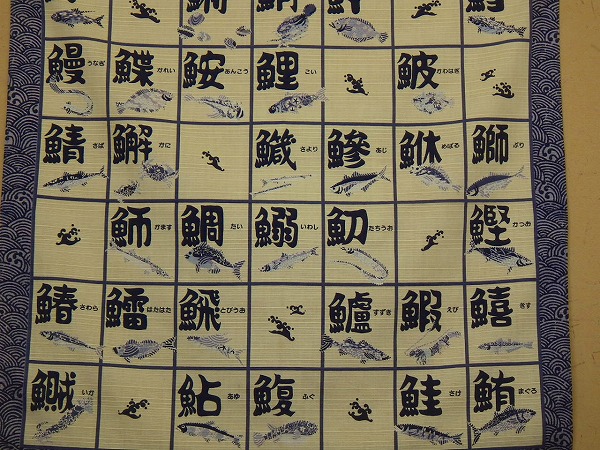 鰻 うなぎ 鰈 かれい 鮟 あんこう 鯉 こい 鮍 かわはぎ
鯖 さば 鱰 かに 鱵 さより 鰺 あじ 鮴 めばる 鰤 ぶり
魳 かます 鯛 たい 鰯 いわし 魛 たちうお 鰹 かつお
鰆 さわら 鱩 はたはた 鱸 すずき 鰕 えび 鱚 きす
とびうお
鰂 いか 鮎 あゆ 鰒 ふぐ 鮭 さけ 鮪 まぐろ